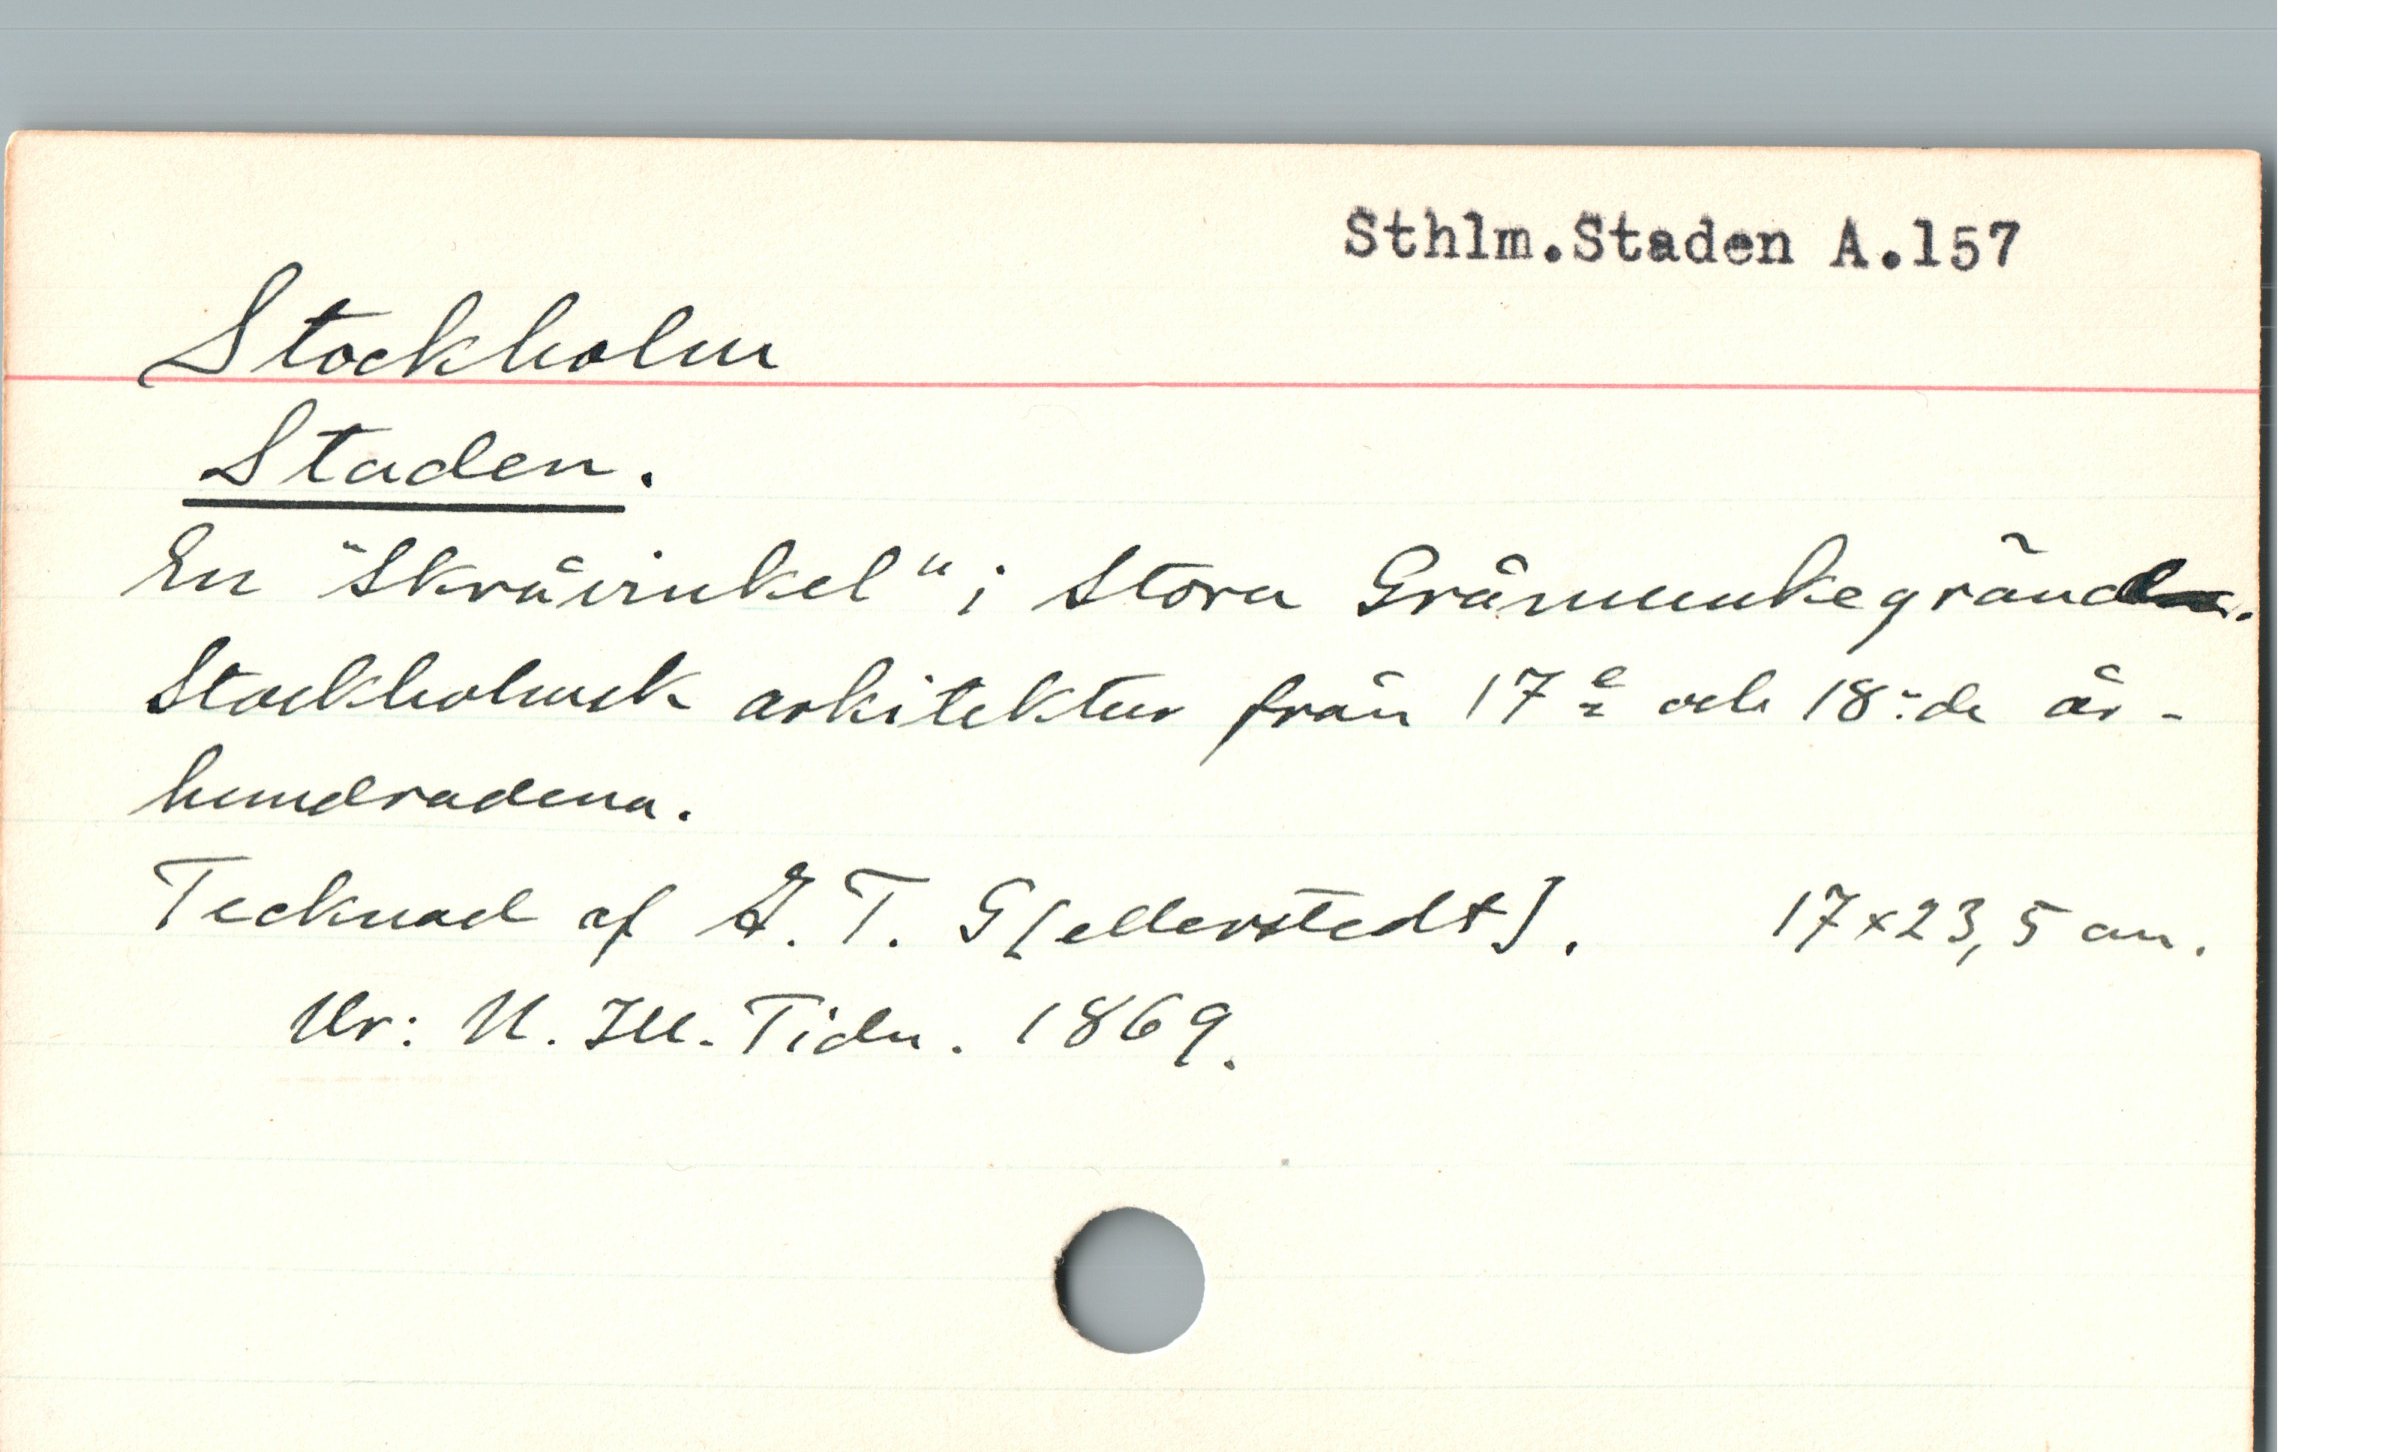 Sthlm.Staden A.157
Stockholm
Staden.
En "Skråvinkel" i Stora Gråmunkegränd.
Stockholmsk arkitektur från 17e och 18:de år-
hundradena.
Tecknad af G. T. G[ellerstedt]. 17x23,5 cm.
Ur: N. Ill. Tidn. 1869.